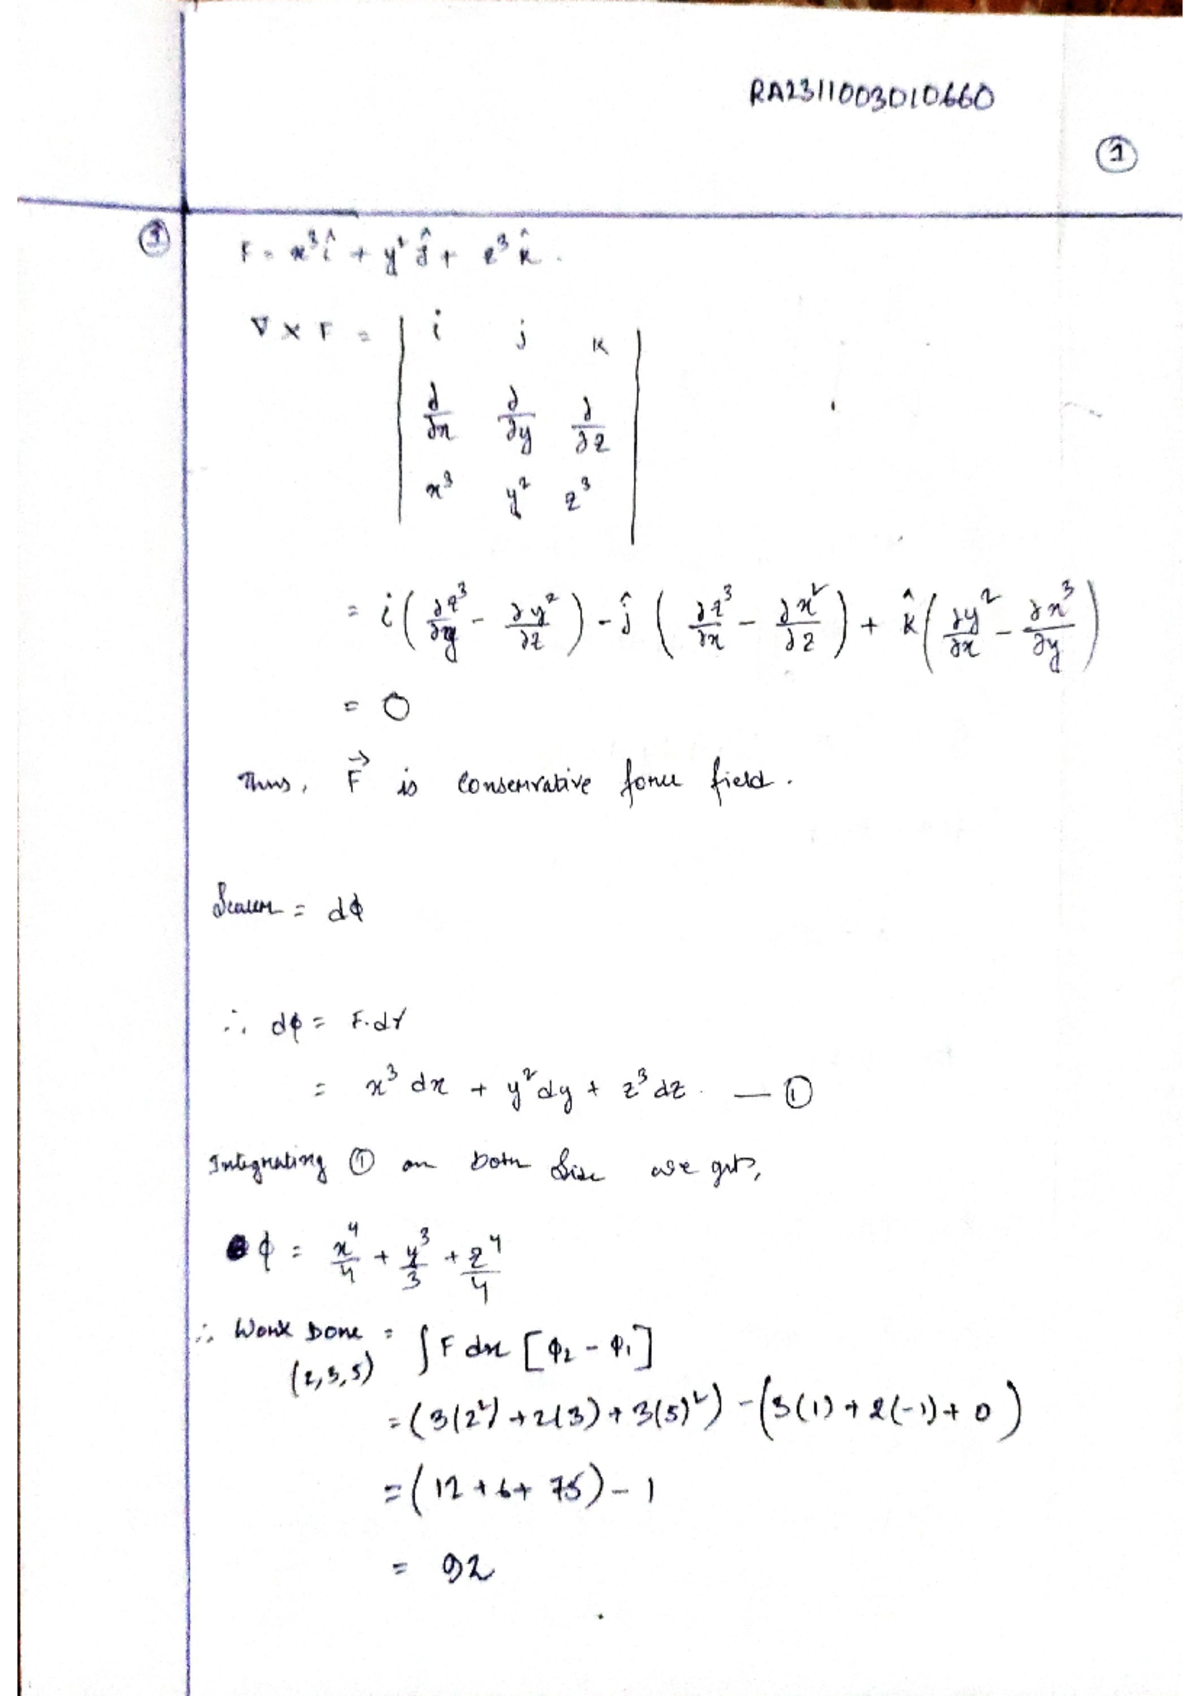 RA2311003010660
①
③
F = x³î + y²ĵ + z³k̂.
∇ × F = | i j k |
| ∂/∂x ∂/∂y ∂/∂z |
| x³ y² z³ |
= i(∂z³/∂y - ∂y²/∂z) - ĵ(∂z³/∂x - ∂x²/∂z) + k̂(∂y²/∂x - ∂x³/∂y)
= 0
Thus, F⃗ is conservative force field.
Scaler = dφ
∴ dφ = F.dr
= x³ dx + y² dy + z³ dz. — ①
Integrating ① on both side we get,
φ = x⁴/4 + y³/3 + z⁴/4
∴ Work Done = ∫F dx [φ₂ - φ₁]
(2,3,5)
= (3(2²) + 2(3) + 3(5)²) - (3(1) + 2(-1) + 0)
= (12 + 6 + 75) - 1
= 92